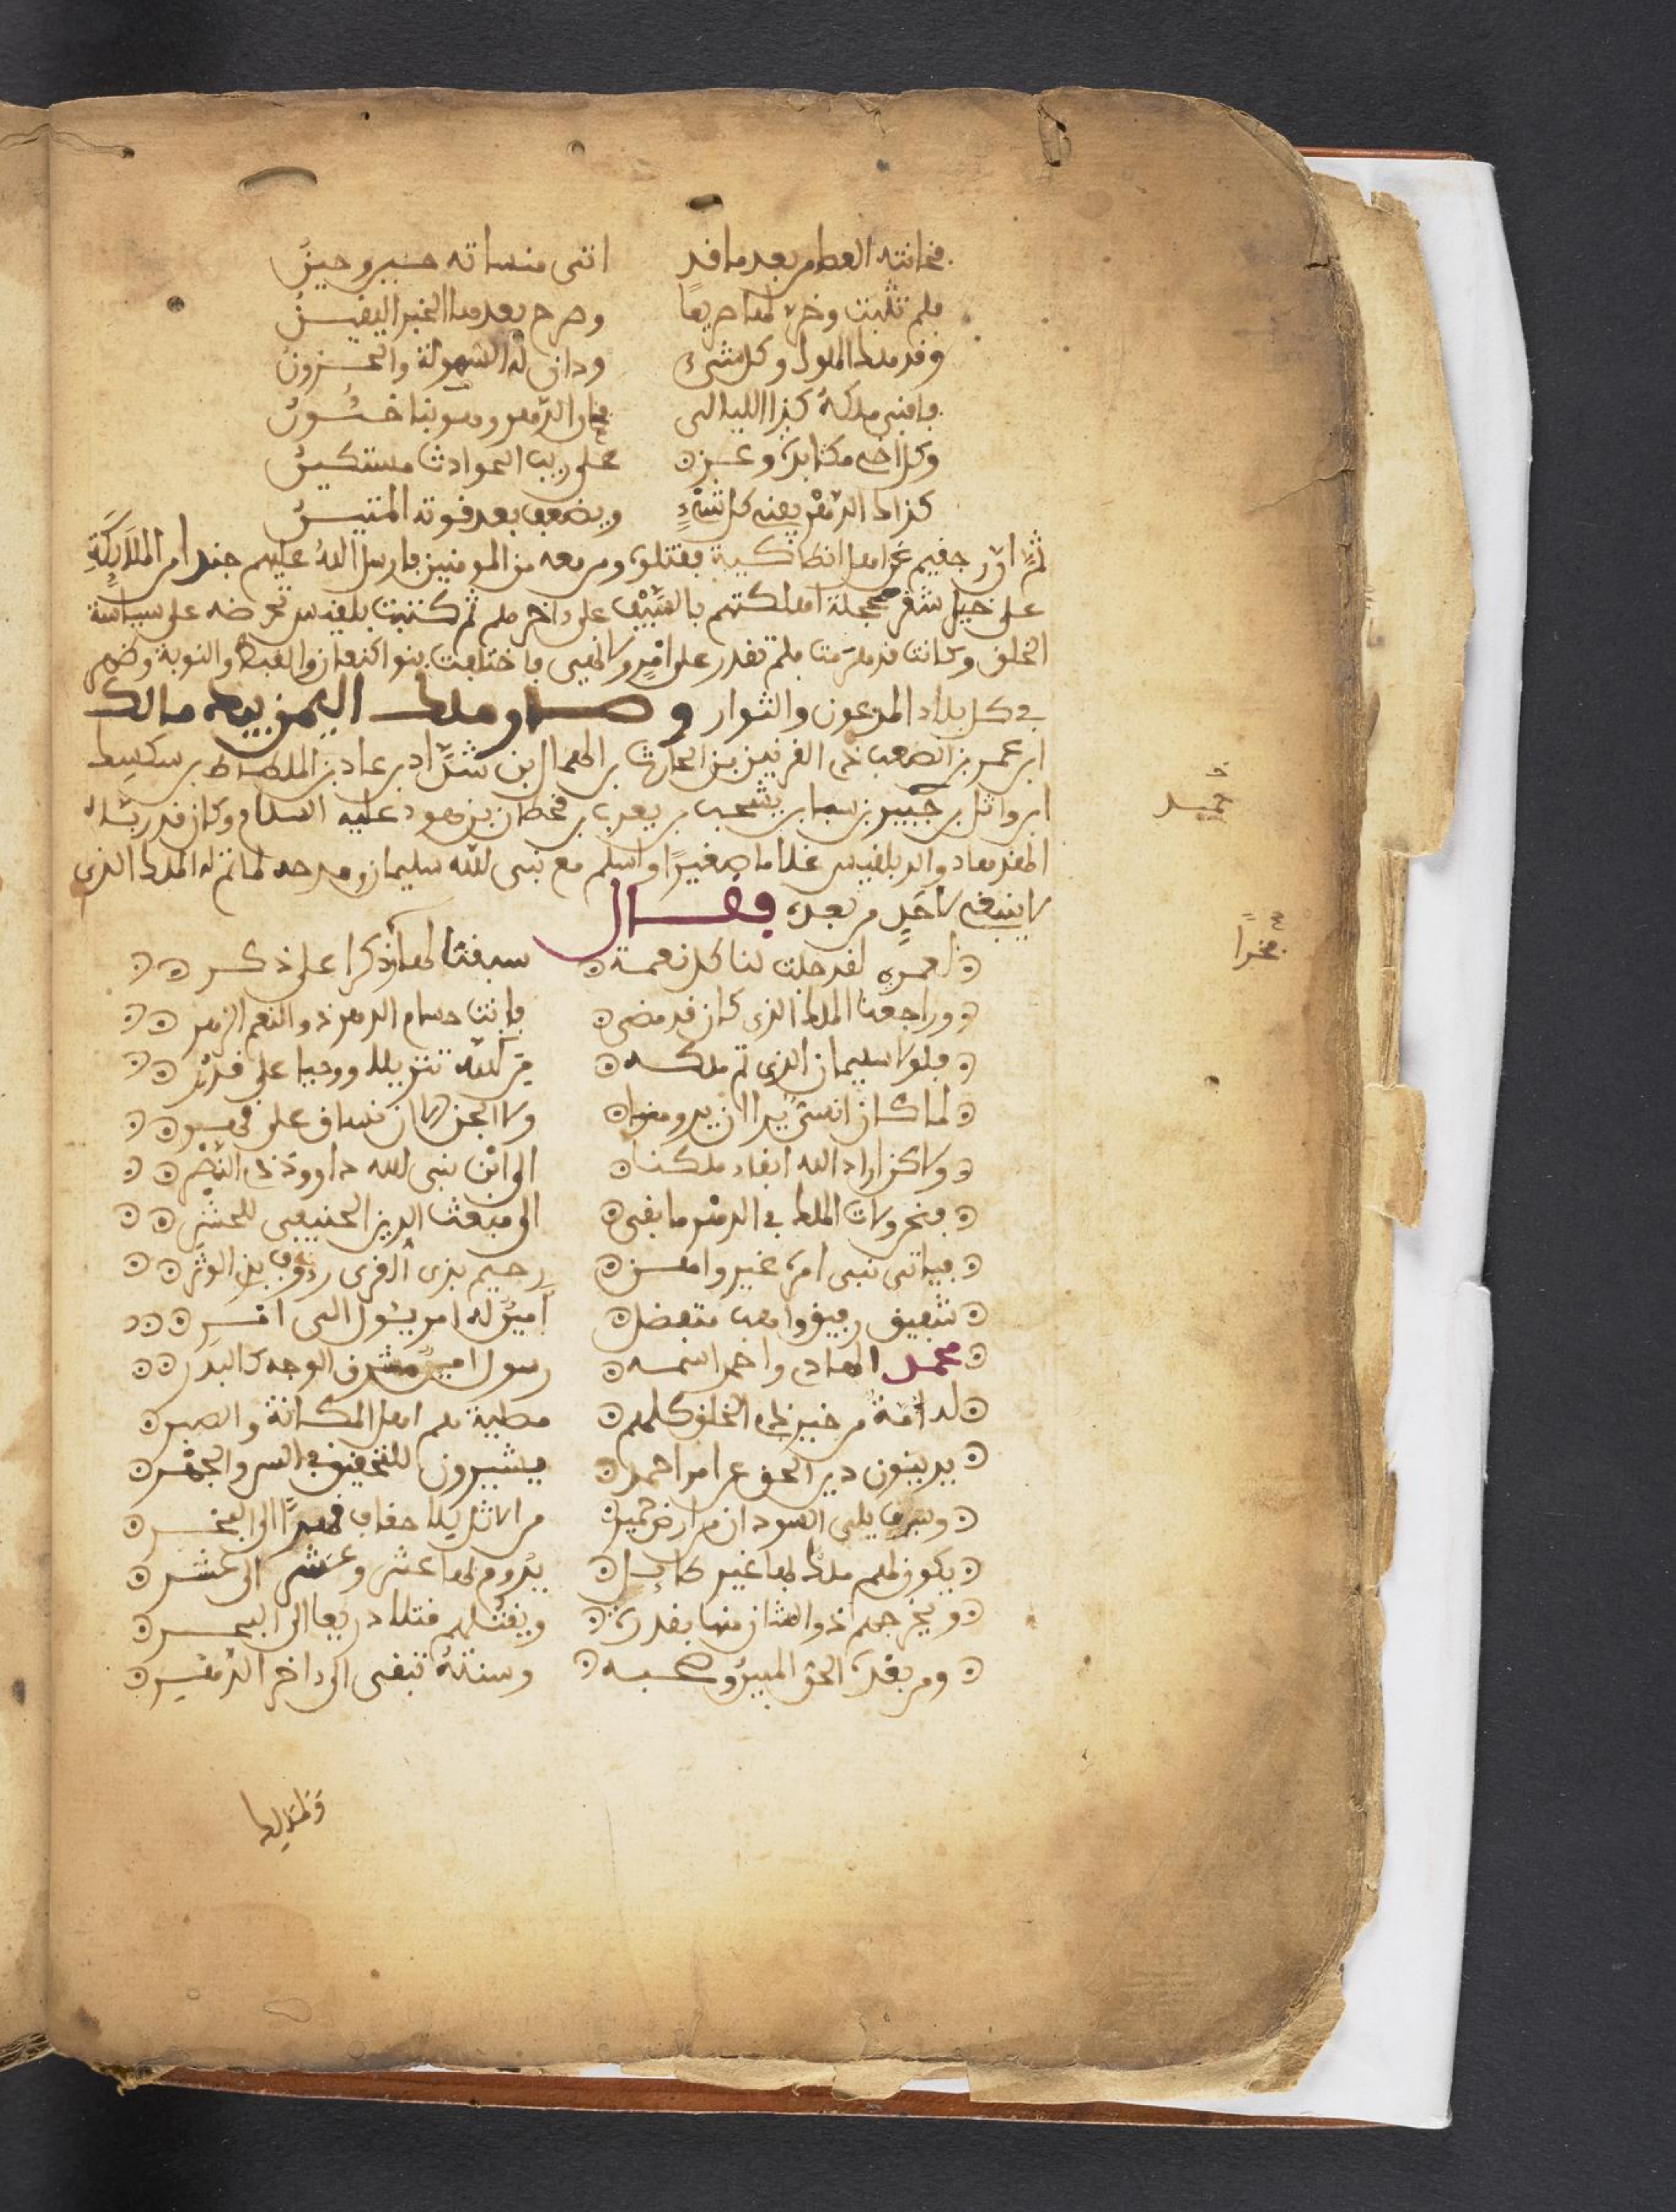 فخانته العصا من بعد ما قد اتى منساته حين وحين
فلم تلبث وخر لها صريعا وصرح بعدها الخبر اليقين
وقد ملك الملوك وكل شيء ودان له السهولة والحزون
فافنى ملكه كر الليالي وخان الدهر وهو بنا خئون
وكل اخي مكاثرة وعز على ريب الحوادث مستكين
كذاك الدهر يفني كل شيء ويضعف بعد قوته المتين
ثم ان رحبعم غزا اهل انطاكية فقتلوه ومن معه من المومنين فارسل الله عليهم جندا من الملايكة
على خيل شقر محجلة اهلكتهم بالسيف على داخرهم ثم كتبت بلقيس تحرضه على سياسة
الخلق وكانت قد هرمت فلم تقدر على امر ولا نهي فاختلفت بنوا كنعان والقبط والنوبة وظهر
في كل بلاد المدعون والثوار وصار ملك اليمن بيد مالك
ابن عمرو بن الصعب ذي القرنين بن الحارث بن الهمال بن شداد بن عاد بن الملطاط بن سكسك
ابن واثل بن حمير بن سبا بن يشجب بن يعرب بن قحطان بن هود عليه السلام وكان قد رباه
الهدهاد والد بلقيس غلاما صغيرا واسلم مع نبي الله سليمان ومدحه لما تم له الملك الذي
لا ينبغي لاحد من بعده فقال
لعمري لقد جلت لنا كل نعمة سبقنا لها ذكرا على ذكر
وراجعنا الملك الذي كان قد مضى فانت حسام الدهر ذو النعم الزهر
فلولا سليمان الذي تم ملكه من الله تنزيلا ووحيا على قدر
لما كان انسي يدا ان يرومنا ولا الجن الا ان نساق على قسر
ولاكن اراد الله انفاد ملكنا الى ابن نبي الله داوود ذي النجر
فنحن ولات الملك في الدهر ما بقي الى مبعث الدين الحنيفي للحشر
فياتي نبي امره غير واهن رحيم بذي القربى رءوف بذي الوتر
شفيق رفيق واهب متفضل امين له امر يئول الى امر
محمد الهادي واحمد اسمه رسول امين مشرق الوجه كالبدر
له امة من خير ذي الخلق كلهم مطية هم اهل المكانة والصبر
يدينون دين الحق عن امر احمد يشيرون للتحقيق في السر والجهر
وسوف يلي السودان من ارض حمير من الاثل يلا حقاب قهرا الى الفخر
يكون لهم ملك بها غير طايل يدوم لها عشر وعشر الى عشر
ويخرجهم ذو الشان منها بقدرة ويقتلهم قتلا ذريعا الى البحر
ومن بعده الحق المبين وحسبه وسنته تبقى الى داخر الدهر
حميد
فخرا